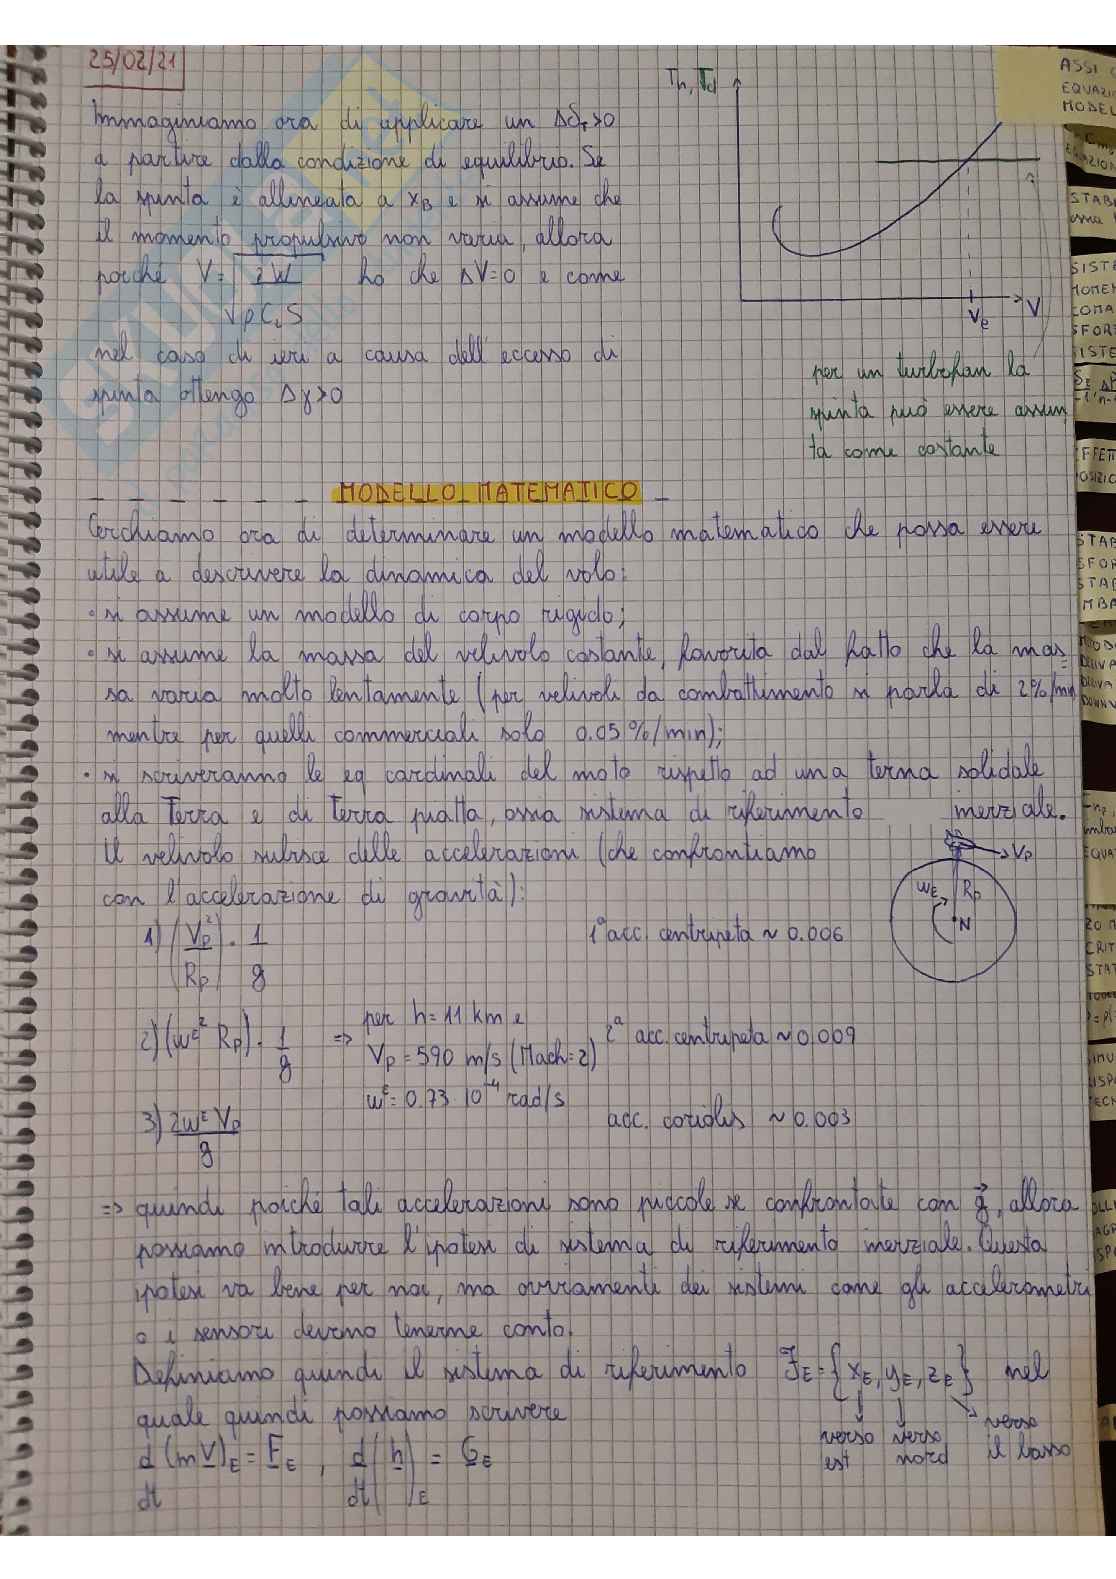 25/02/21
Immaginiamo ora di applicare un Δδ_T>0
a partire dalla condizione di equilibrio. Se
la spinta è allineata a x_B e si assume che
il momento propulsivo non varia, allora
poiché V = √(2W / ρ C_L S) ho che ΔV=0 e come
nel caso di ieri a causa dell'eccesso di
spinta ottengo Δγ>0
Th, Td
V
V_e
per un turbofan la
spinta può essere assun
ta come costante
MODELLO MATEMATICO
Cerchiamo ora di determinare un modello matematico che possa essere
utile a descrivere la dinamica del volo:
• si assume un modello di corpo rigido;
• si assume la massa del velivolo costante, favorita dal fatto che la mas=
sa varia molto lentamente (per velivoli da combattimento si parla di 2%/min
mentre per quelli commerciali solo 0.05%/min);
• si scriveranno le eq cardinali del moto rispetto ad una terna solidale
alla Terra e di Terra piatta, ossia sistema di riferimento inerziale.
Il velivolo subisce delle accelerazioni (che confrontiamo
con l'accelerazione di gravità):
V_P
ω_E R_P
N
1) (V_P²/R_P) · 1/g 1ª acc. centripeta ~ 0.006
2) (ω^E² R_P) · 1/g => per h = 11 km e 2ª acc. centripeta ~ 0.009
V_P = 590 m/s (Mach=2)
ω^E = 0.73 · 10^-4 rad/s
3) 2ω^E V_P / g acc. coriolis ~ 0.003
=> quindi poiché tali accelerazioni sono piccole se confrontate con g⃗, allora
possiamo introdurre l'ipotesi di sistema di riferimento inerziale. Questa
ipotesi va bene per noi, ma ovviamenti dei sistemi come gli accelerometri
o i sensori devono tenerne conto.
Definiamo quindi il sistema di riferimento F_E = {x_E, y_E, z_E} nel
quale quindi possiamo scrivere
verso est
verso nord
verso il basso
d/dt (mV)_E = F_E , d/dt (h)_E = G_E